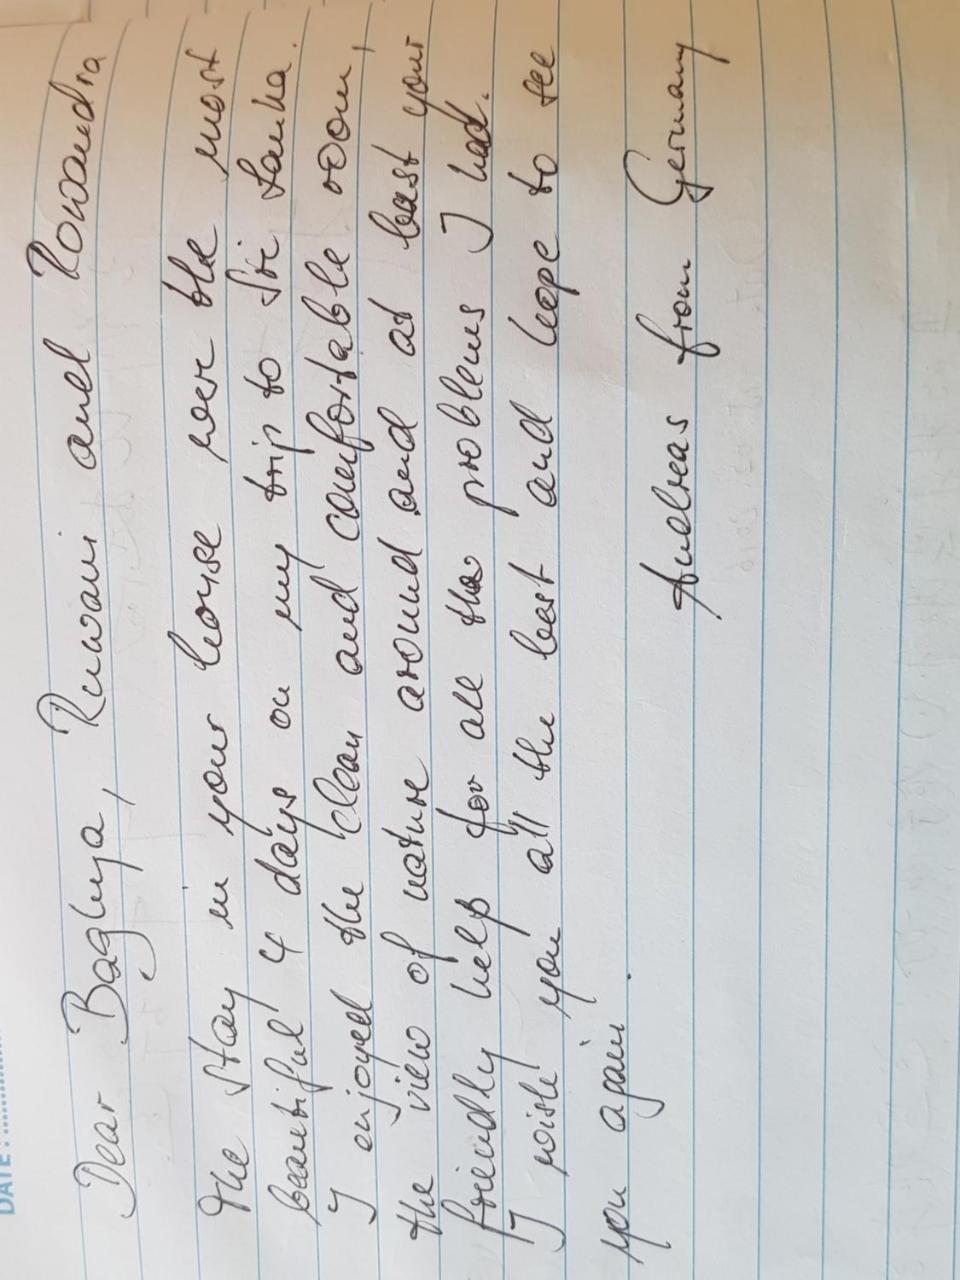 DATE :............
Dear Baghya, Ruwani and Romandra
The stay in your house wer the most
beautiful 4 days on my trip to Sri Lanka.
I enjoyed the clean and comfortable room,
the view of nature around and at least your
friendly help for all the problems I had.
I wish you all the best and hope to see
you again.
Andreas from Germany